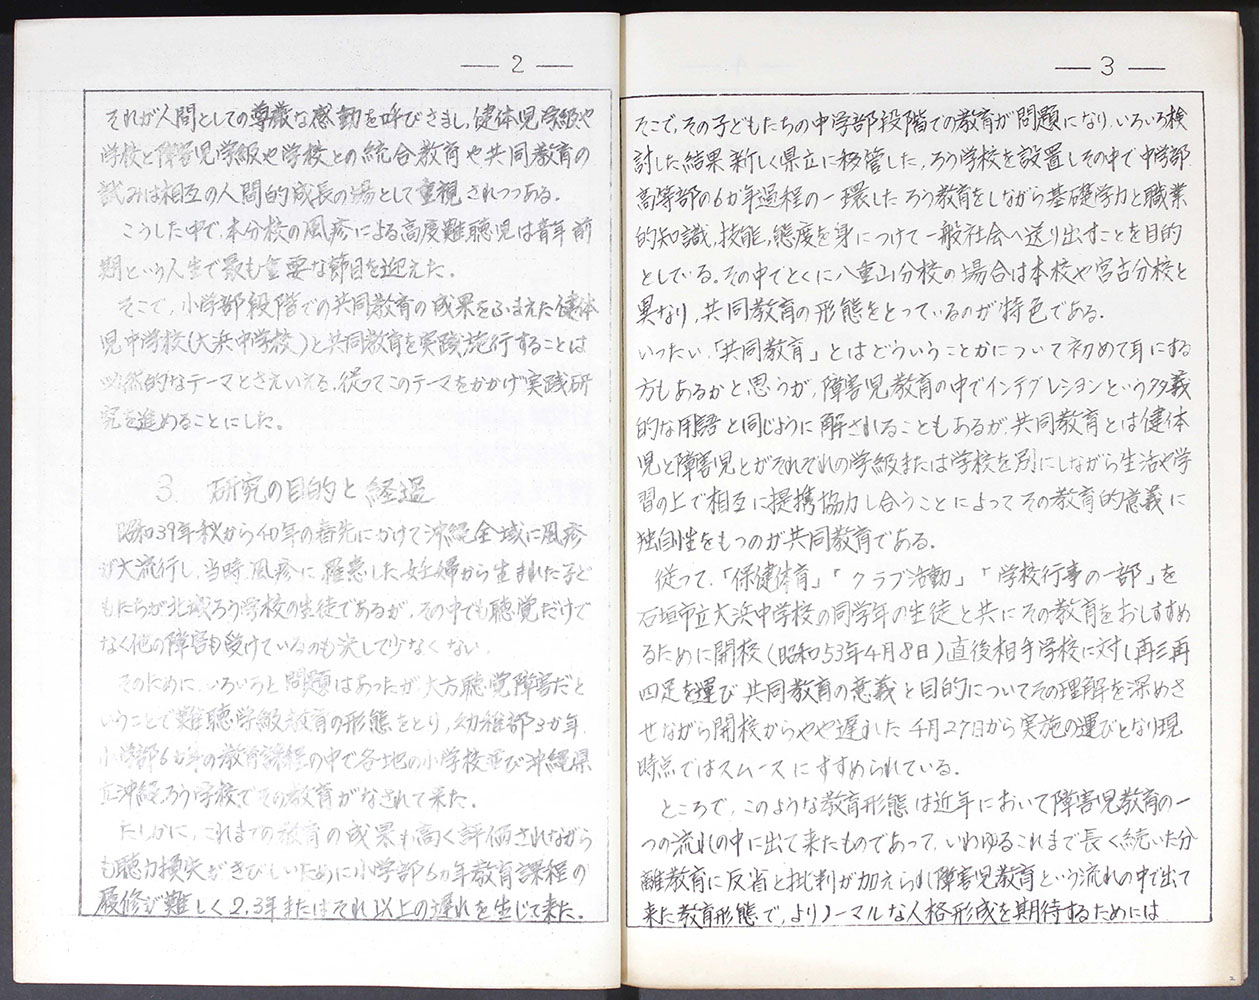 — 2 —
それが人間としての尊厳な感動を呼びさまし、健体児学級や
学校と障害児学級や学校との統合教育や共同教育の
試みは相互の人間的成長の場として重視されつつある。
こうした中で、本分校の風疹による高度難聴児は青年前
期という人生で最も重要な節目を迎えた。
そこで、小学部段階での共同教育の成果をふまえた健体
児中学校(大浜中学校)と共同教育を実践、施行することは
必然的なテーマとさえいえる、従ってこのテーマをかかげ実践研
究を進めることにした。
3. 研究の目的と経過
昭和39年秋から40年の春先にかけて沖縄全域に風疹
が大流行し、当時、風疹に罹患した妊婦から生まれた子ど
もたちが北城ろう学校の生徒であるが、その中でも聴覚だけで
なく他の障害も受けているのも決して少なくない。
そのために、いろいろと問題はあったが、大方聴覚障害だと
いうことで難聴学級教育の形態をとり、幼稚部3か年、
小学部6か年の教育課程の中で各地の小学校並び沖縄県
立沖縄ろう学校でその教育がなされて来た。
たしかに、これまでの教育の成果も高く評価されながら
も聴力損失がきびしいために小学部6カ年教育課程の
履修が難しく2.3年またはそれ以上の遅れを生じて来た。
— 3 —
そこで、その子どもたちの中学部段階での教育が問題になり、いろいろ検
討した結果新しく県立に移管した、ろう学校を設置しその中で中学部
高等部の6か年過程の一環した ろう教育をしながら基礎学力と職業
的知識,技能,態度を身につけて一般社会へ送り出すことを目的
としている。その中でとくに八重山分校の場合は本校や宮古分校と
異なり、共同教育の形態をとっているのが特色である。
いったい、「共同教育」とはどういうことかについて初めて耳にする
方もあるかと思うが、障害児教育の中でインテグレションという多義
的な用語と同じように解されることもあるが、共同教育とは健体
児と障害児とがそれぞれの学級または学校を別にしながら生活や学
習の上で相互に提携協力し合うことによってその教育的意義に
独自性をもつのが共同教育である。
従って、「保健体育」「クラブ活動」「学校行事の一部」を
石垣市立大浜中学校の同学年の生徒と共にその教育をおしすすめ
るために開校(昭和53年4月8日)直後相手学校に対し再三再
四足を運び共同教育の意義と目的についてその理解を深めさ
せながら開校からやや遅れた4月27日から実施の運びとなり現
時点ではスムースにすすめられている。
ところで、このような教育形態は近年において障害児教育の一
つの流れの中に出て来たものであって、いわゆるこれまで長く続いた分
離教育に反省と批判が加えられ障害児教育という流れの中で出て
来た教育形態で、よりノーマルな人格形成を期待するためには